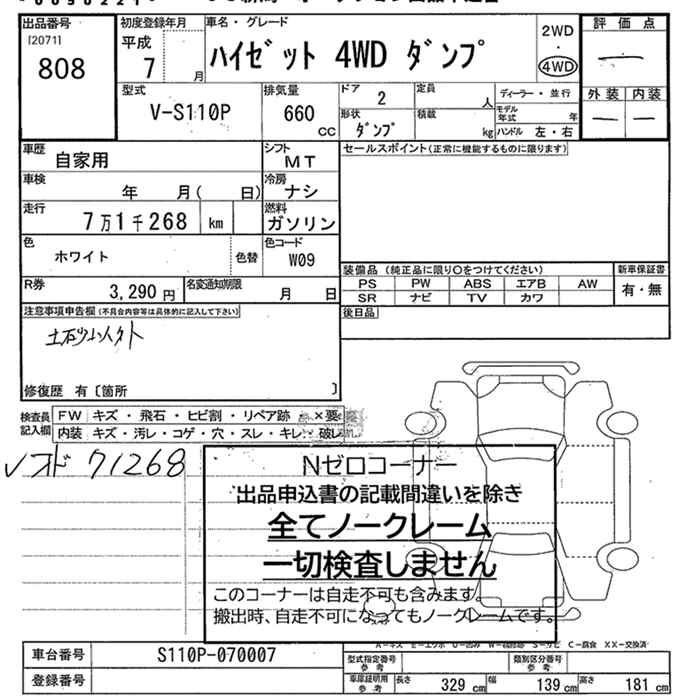 出品番号
[20711]
808
初度登録年月
平成
7 月
車名・グレード
ハイゼット 4WD ダンプ
2WD
・
4WD
評価点
外装 内装
型式
V-S110P
排気量
660 CC
ドア 2
形状
ダンプ
定員 人
積載 kg
ディーラー・並行
モデル年式 年
ハンドル 左・右
車歴
自家用
シフト
MT
車検
年 月( 日)
冷房
ナシ
走行
7万1千268 km
燃料
ガソリン
色
ホワイト
色替
色コード
W09
R券
3,290 円
名変通知期限
月 日
セールスポイント(正常に機能するものに限ります)
装備品 (純正品に限り○をつけてください)
PS PW ABS エアB AW
SR ナビ TV カワ
新車保証書
有・無
後日品
注意事項申告欄(不具合内容等は具体的に記入して下さい)
修復歴 有〔箇所 〕
検査員
記入欄
FW キズ・飛石・ヒビ割・リペア跡・×要
内装 キズ・汚レ・コゲ・穴・スレ・キレ・破レ
71268
Nゼロコーナー
出品申込書の記載間違いを除き
全てノークレーム
一切検査しません
このコーナーは自走不可も含みます。
搬出時、自走不可になってもノークレームです。
車台番号 S110P-070007
登録番号
型式指定番号
参考
類別区分番号
参考
車庫証明用
参考
長さ 329 cm 幅 139 cm 高さ 181 cm